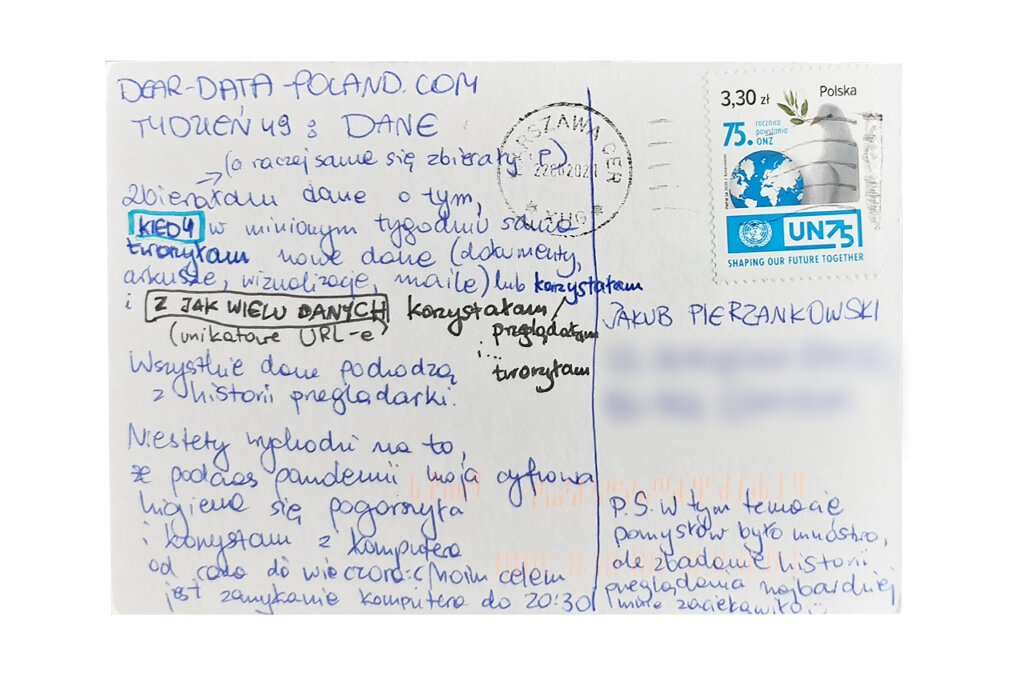 DEAR-DATA-POLAND.COM
TYDZIEŃ 49 : DANE
(a raczej same się zbierały :P)
Zbierałam dane o tym,
KIEDY w minionym tygodniu sama
tworzyłam nowe dane (dokumenty,
arkusze, wizualizacje, maile) lub korzystałam
i Z JAK WIELU DANYCH korzystałam /
(unikatowe URL-e)
przeglądałam
i...
tworzyłam
Wszystkie dane pochodzą
z historii przeglądarki.
Niestety wychodzi na to,
że podczas pandemii moja cyfrowa
higiena się pogorszyła
i korzystam z komputera
od rana do wieczora :( Moim celem
jest zamykanie komputera do 20:30
WARSZAWA
3,30 zł
Polska
75.
rocznica
powstania
ONZ
UN75
SHAPING OUR FUTURE TOGETHER
JAKUB PIERZANKOWSKI
P.S. W tym temacie
pomysłów było mnóstwo,
ale zbadanie historii
przeglądania najbardziej
mnie zaciekawiło :)